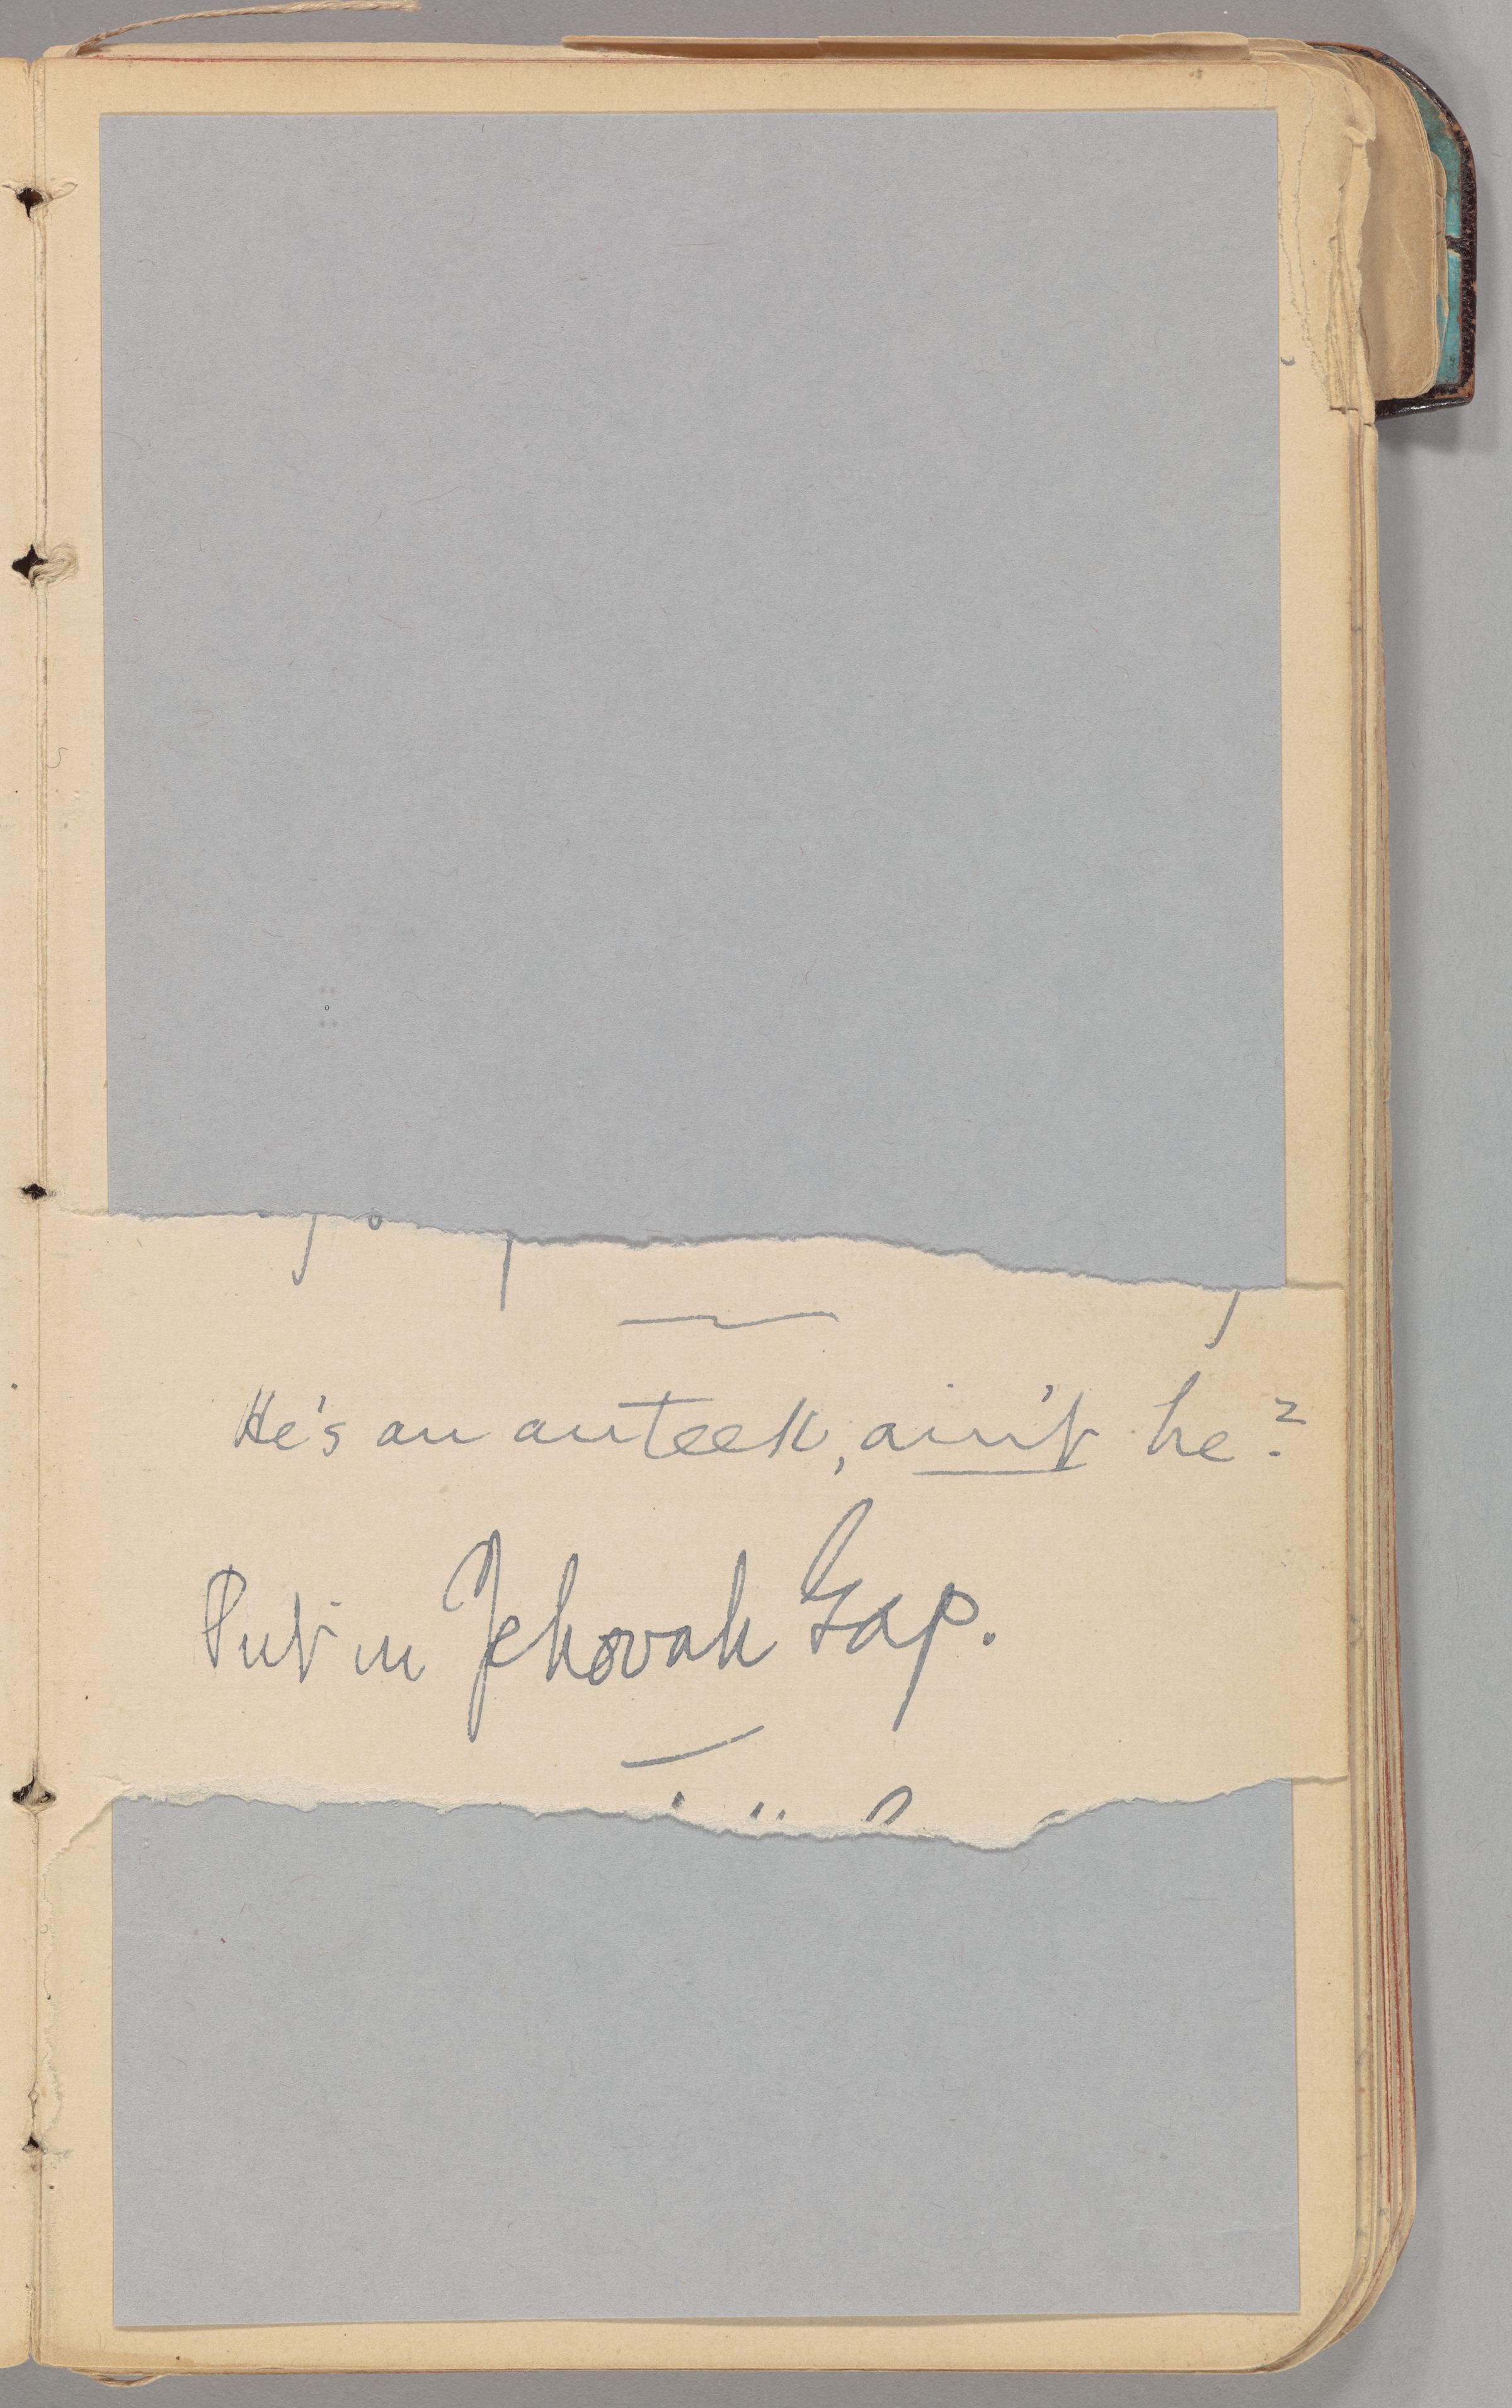 He's an anteek, ain't he?
Put in Jehovah Gap.